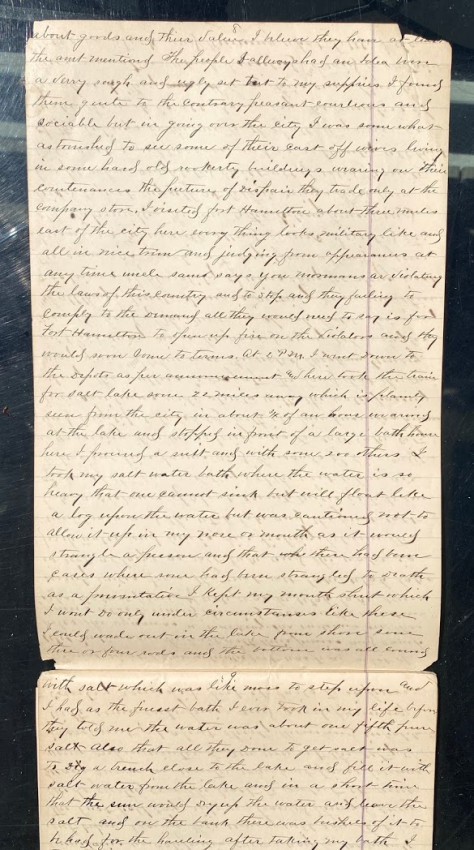 8
about goods and their values, I beleve they have at least
the amt mentioned The people I allways had an Idea were
a very rough and ugly set but to my suppries I found
them quite to the contrary peasant courleous and
sociable but in going over the city I was some what
astonished to see some of their cast off wives living
in some hard old buildings wearing on their
countenances the picture of dispair they trade only at the
company store, I visited fort Hamilton about three miles
east of the city here every thing looks military like and
all in nice trim and judging from appearances at
any time uncle sam says you mormans are violating
the laws of this country and to stop and they failing to
comply to the demand all they would need to say is for
Fort Hamilton to open up fire on the violators and they
would soon come to terms. At 2 P.M. I went down to
the Depots as per announcement & here took the train
for salt lake some 22 miles away which is plainly
seen from the city in about ¾ of an hour we arrived
at the lake and stopped in front of a large bath house
here I procured a suit and with some 200 others I
took my salt water bath where the water is so
heavy that one cannot sink but will float like
a log upon the water but was cautioned not to
allow it up in my nose or mouth as it would
strangle a person and that there had been
cases where some had been strangled to death
as a preventative I kept my mouth shut which
I wont do only under circumstances like these
I could wade out in the lake from shore some
three or four rods and the bottom was all
9
with salt which was like moss to step upon and
I had as the finest bath I ever took in my life
they told me the water was about one fifth pure
salt Also that all they done to get salt was
to dig a trench close to the lake and fill it with
salt water from the lake and in a short time
that the sun would dry up the water and leave the
salt and on the bank there was bushels of it to
be had for the hauling after taking my bath I